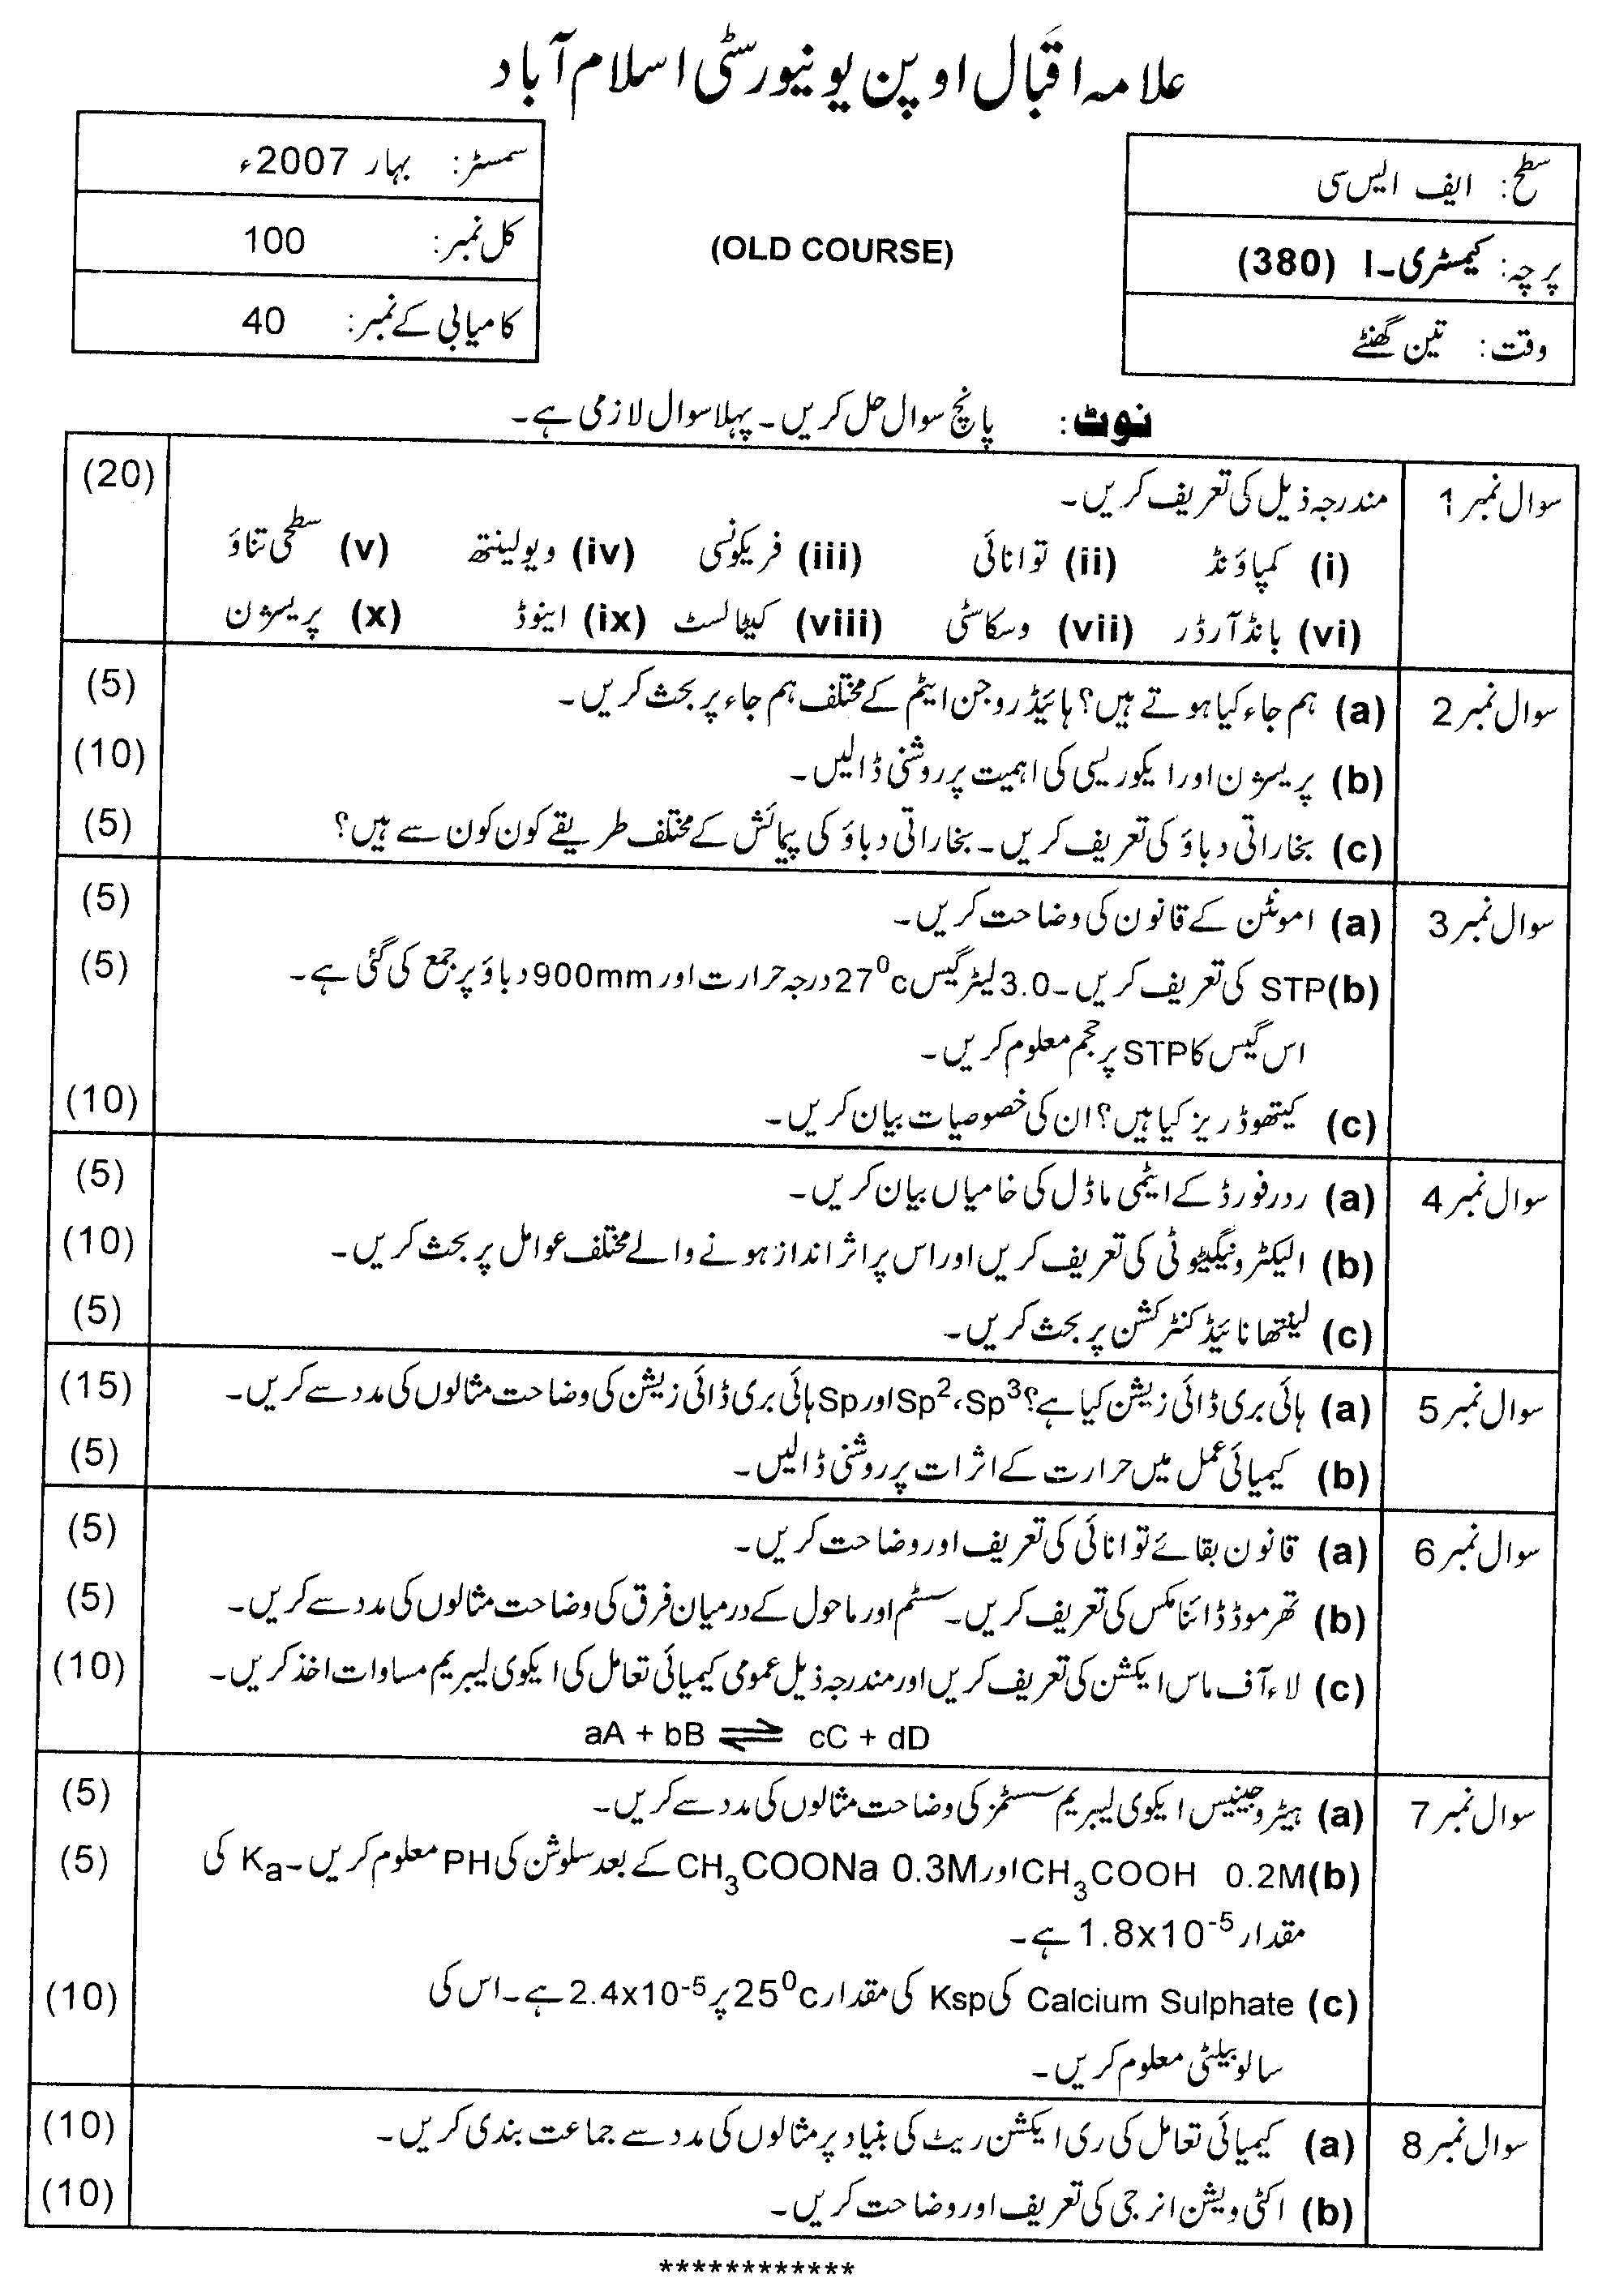 علامہ اقبال اوپن یونیورسٹی اسلام آباد
سطح: ایف ایس سی
پرچہ: کیمسٹری۔I (380)
وقت: تین گھنٹے
(OLD COURSE)
سمسٹر: بہار 2007ء
کل نمبر: 100
کامیابی کے نمبر: 40
نوٹ: پانچ سوال حل کریں۔ پہلا سوال لازمی ہے۔
سوال نمبر 1 مندرجہ ذیل کی تعریف کریں۔ (20)
(i) کمپاؤنڈ (ii) توانائی (iii) فریکونسی (iv) ویولینتھ (v) سطحی تناؤ
(vi) بانڈ آرڈر (vii) وسکاسٹی (viii) کیٹالسٹ (ix) اینوڈ (x) پریسژن
سوال نمبر 2 (a) ہم جاء کیا ہوتے ہیں؟ ہائیڈروجن ایٹم کے مختلف ہم جاء پر بحث کریں۔ (5)
(b) پریسژن اور ایکوریسی کی اہمیت پر روشنی ڈالیں۔ (10)
(c) بخاراتی دباؤ کی تعریف کریں۔ بخاراتی دباؤ کی پیمائش کے مختلف طریقے کون کون سے ہیں؟ (5)
سوال نمبر 3 (a) امونٹن کے قانون کی وضاحت کریں۔ (5)
(b) STP کی تعریف کریں۔ 3.0 لیٹر گیس 27⁰c درجہ حرارت اور 900mm دباؤ پر جمع کی گئی ہے۔ (5)
اس گیس کا STP پر حجم معلوم کریں۔
(c) کیتھوڈ ریز کیا ہیں؟ ان کی خصوصیات بیان کریں۔ (10)
سوال نمبر 4 (a) ردرفورڈ کے ایٹمی ماڈل کی خامیاں بیان کریں۔ (5)
(b) الیکٹرونیگیٹیوٹی کی تعریف کریں اور اس پر اثر انداز ہونے والے مختلف عوامل پر بحث کریں۔ (10)
(c) لینتھانائیڈ کنٹرکشن پر بحث کریں۔ (5)
سوال نمبر 5 (a) ہائی بری ڈائی زیشن کیا ہے؟ Sp³، Sp² اور Sp ہائی بری ڈائی زیشن کی وضاحت مثالوں کی مدد سے کریں۔ (15)
(b) کیمیائی عمل میں حرارت کے اثرات پر روشنی ڈالیں۔ (5)
سوال نمبر 6 (a) قانون بقائے توانائی کی تعریف اور وضاحت کریں۔ (5)
(b) تھرموڈ ڈائنامکس کی تعریف کریں۔ سسٹم اور ماحول کے درمیان فرق کی وضاحت مثالوں کی مدد سے کریں۔ (5)
(c) لاء آف ماس ایکشن کی تعریف کریں اور مندرجہ ذیل عمومی کیمیائی تعامل کی ایکوی لیبریم مساوات اخذ کریں۔ (10)
aA + bB ⇌ cC + dD
سوال نمبر 7 (a) ہیٹروجینیس ایکوی لیبریم سسٹمز کی وضاحت مثالوں کی مدد سے کریں۔ (5)
(b) 0.2M CH₃COOH اور 0.3M CH₃COONa کے بعد سلوشن کی PH معلوم کریں۔ Kₐ کی (5)
مقدار 1.8x10⁻⁵ ہے۔
(c) Calcium Sulphate کی Ksp کی مقدار 25⁰c پر 2.4x10⁻⁵ ہے۔ اس کی (10)
سالوبیلٹی معلوم کریں۔
سوال نمبر 8 (a) کیمیائی تعامل کی ری ایکشن ریٹ کی بنیاد پر مثالوں کی مدد سے جماعت بندی کریں۔ (10)
(b) اکٹی ویشن انرجی کی تعریف اور وضاحت کریں۔ (10)
************